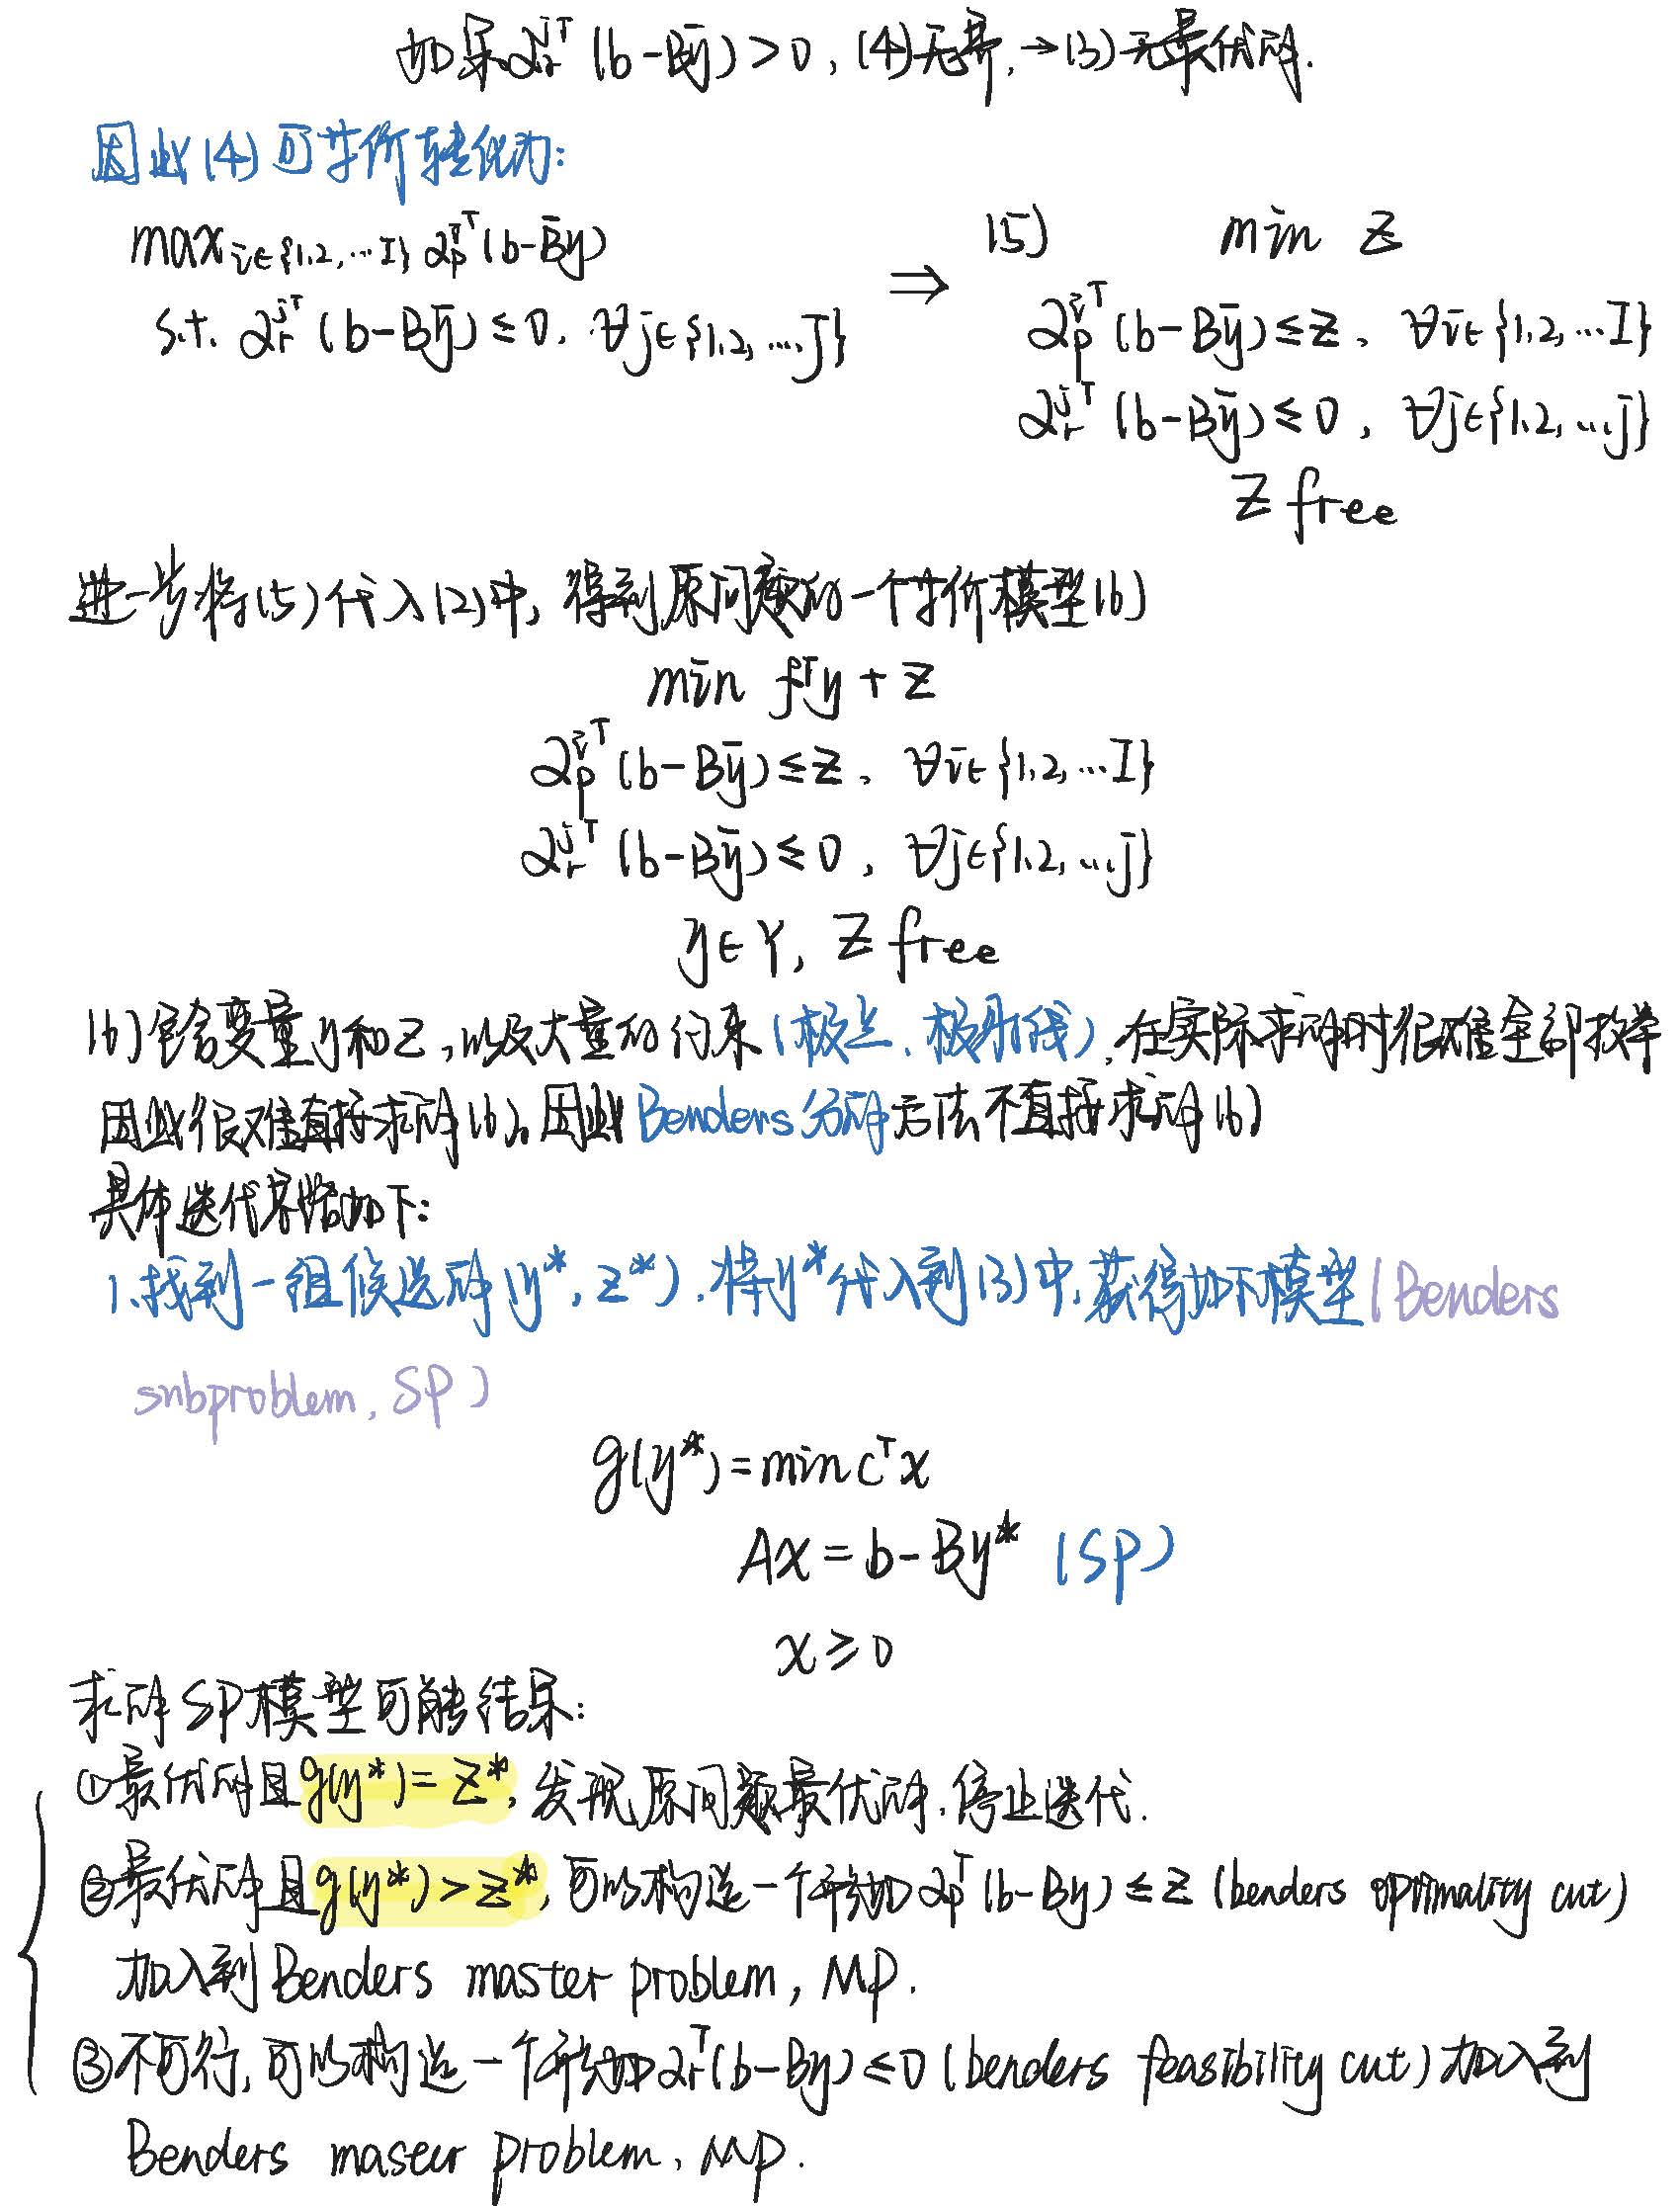 如果 α_r^{jT}(b-Bȳ)>0, (4)无界, →(3)无最优解.
因此(4)可等价转化为:
max_{i∈{1,2,…I}} α_p^{iT}(b-Bȳ)
s.t. α_r^{jT}(b-Bȳ)≤0, ∀j∈{1,2,…,J}
⇒
(5) min z
α_p^{iT}(b-Bȳ)≤z, ∀i∈{1,2,…I}
α_r^{jT}(b-Bȳ)≤0, ∀j∈{1,2,…,j}
z free
进一步将(5)代入(2)中, 得到原问题的一个等价模型(6)
min f^T y + z
α_p^{iT}(b-Bȳ)≤z, ∀i∈{1,2,…I}
α_r^{jT}(b-Bȳ)≤0, ∀j∈{1,2,…,j}
y∈Y, z free
(6)包含变量y和z, 以及大量的约束(极点、极射线), 在实际求解时很难全部枚举
因此很难直接求解(6), 因此Benders分解方法不直接求解(6)
具体迭代思路如下:
1. 找到一组候选解(y*, z*). 将y*代入到(3)中, 获得如下模型(Benders
snbproblem, SP)
g(y*)=min c^T x
Ax=b-By* (SP)
x≥0
求解SP模型可能结果:
①最优解且g(y*)=z*, 发现原问题最优解, 停止迭代.
②最优解且g(y*)>z*, 可以构造一个形如α_p^T(b-By)≤z (benders optimality cut)
加入到Benders master problem, MP.
③不可行, 可以构造一个形如α_r^T(b-By)≤0 (benders feasibility cut) 加入到
Benders maseer problem, MP.